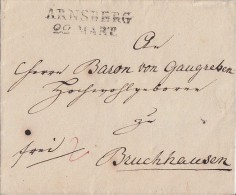 ARNSBERG
22 MART
An
Herrn Baron von Gaugreben
Hochwohlgeboren
zu
frei
Bruchhausen